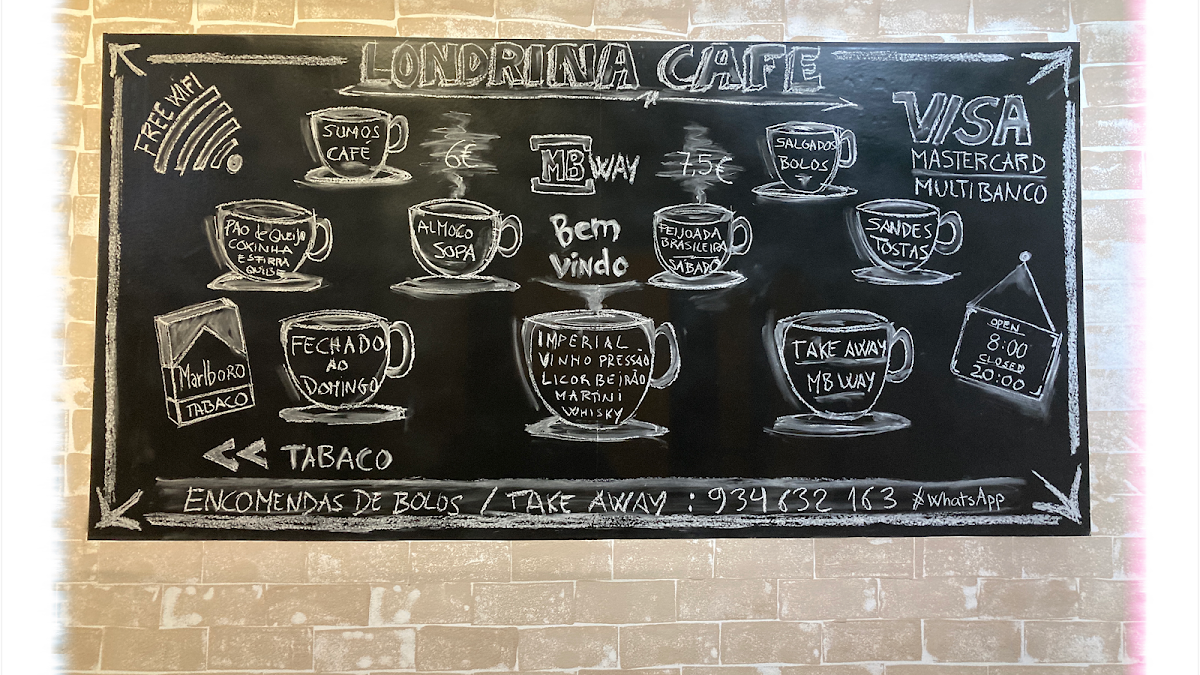 LONDRINA CAFE
FREE WIFI
SUMOS
CAFÉ
6€
MB WAY
7,5€
SALGADOS
BOLOS
VISA
MASTERCARD
MULTIBANCO
PÃO de QUEIJO
COXINHA
ESFIRRA
QUIBE
ALMOÇO
SOPA
Bem
Vindo
FEIJOADA
BRASILEIRA
SÁBADO
SANDES
TOSTAS
Marlboro
TABACO
FECHADO
AO
DOMINGO
IMPERIAL
VINHO PRESSÃO
LICOR BEIRÃO
MARTINI
WHISKY
TAKE AWAY
MB WAY
OPEN
8:00
CLOSED
20:00
<< TABACO
ENCOMENDAS DE BOLOS / TAKE AWAY : 934 632 163 #WhatsApp